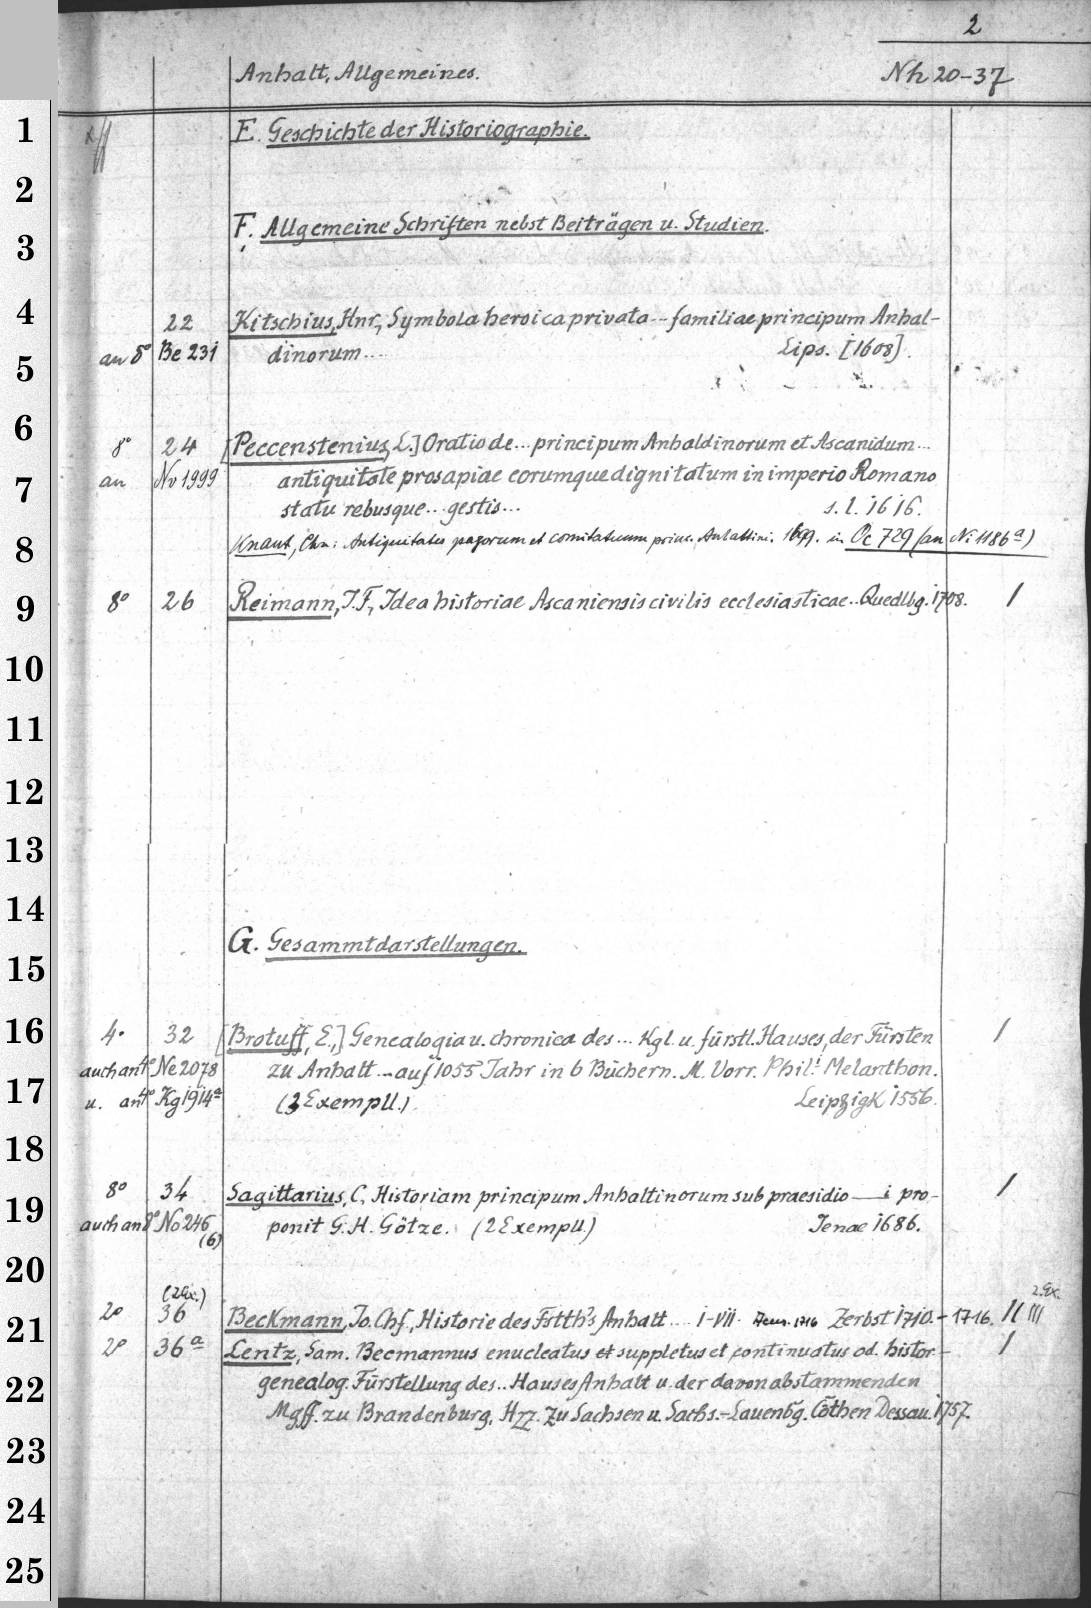 2
Anhalt, Allgemeines. Nh 20-37
1 E. Geschichte der Historiographie.
2
3 F. Allgemeine Schriften nebst Beiträgen u. Studien.
4 22 Kitschius, Hnr., Symbola heroica privata... familiae principum Anhal-
5 an 8° Be 231 dinorum.... Lips. [1608].
6
8° 24 [Peccenstenius, L.] Oratio de... principum Anhaldinorum et Ascanidum...
7 an No 1999 antiquitate prosapiae eorumque dignitatum in imperio Romano
statu rebusque... gestis... s. l. 1616.
8 Knaut, Chn: Antiquitates pagorum et comitatuum princ. Anhaltini. 1699. in Oc 729 (an Ni 1186a)
9 8° 26 Reimann, J. F., Idea historiae Ascaniensis civilis ecclesiasticae.. Quedlbg. 1708. I
10
11
12
13
14
G. Gesammtdarstellungen.
15
16 4° 32 [Brotuff, E.,] Genealogia u. chronica des... Kgl. u. fürstl. Hauses, der Fürsten I
auch an 4° Ne 2078 zu Anhalt... auf 1055 Jahr in 6 Büchern. M. Vorr. Phil. Melanthon.
17 u. an 4° Kg 1914a (3 Exempll.) Leipzigk 1556.
18
19 8° 34 Sagittarius, C., Historiam principum Anhaltinorum sub praesidio — i pro- I
auch an 8° No 246 (6) ponit G. H. Götze. (2 Exempll.) Jenae 1686.
20
(2 Ex.) 2. Ex.
21 2° 36 Beckmann, Jo. Chf., Historie des Fstth's Anhalt.... I-VII. Zerbst 1710.-1716. II III
2° 36a Lentz, Sam. Becmannus enucleatus et suppletus et continuatus od. histor.- I
22 genealog. Fürstellung des.. Hauses Anhalt u. der davon abstammenden
Mgff. zu Brandenburg, Hzz. zu Sachsen u. Sachs.-Lauenbg. Cöthen Dessau. 1757.
23
24
25